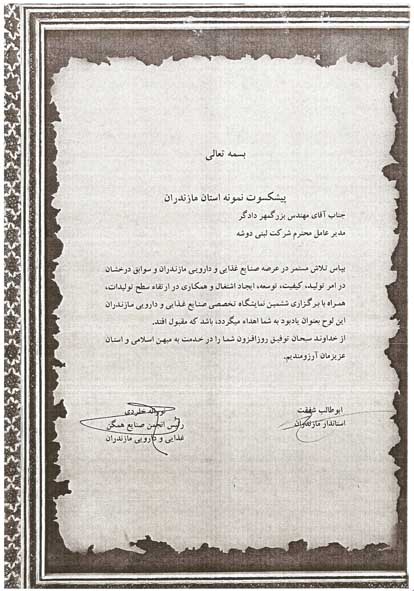 بسمه تعالی
پیشکسوت نمونه استان مازندران
جناب آقای مهندس بزرگمهر دادگر
مدیر عامل محترم شرکت لبنی دوشه
بپاس تلاش مستمر در عرصه صنایع غذایی و دارویی مازندران و سوابق درخشان
در امر تولید، کیفیت، توسعه، ایجاد اشتغال و همکاری در ارتقاء سطح تولیدات،
همراه با برگزاری ششمین نمایشگاه تخصصی صنایع غذایی و دارویی مازندران
این لوح بعنوان یادبود به شما اهداء میگردد، باشد که مقبول افتد.
از خداوند سبحان توفیق روزافزون شما را در خدمت به میهن اسلامی و استان
عزیزمان آرزومندیم.
ابوطالب شفقت
استاندار مازندران
رئیس انجمن صنایع همگن
غذایی و دارویی مازندران